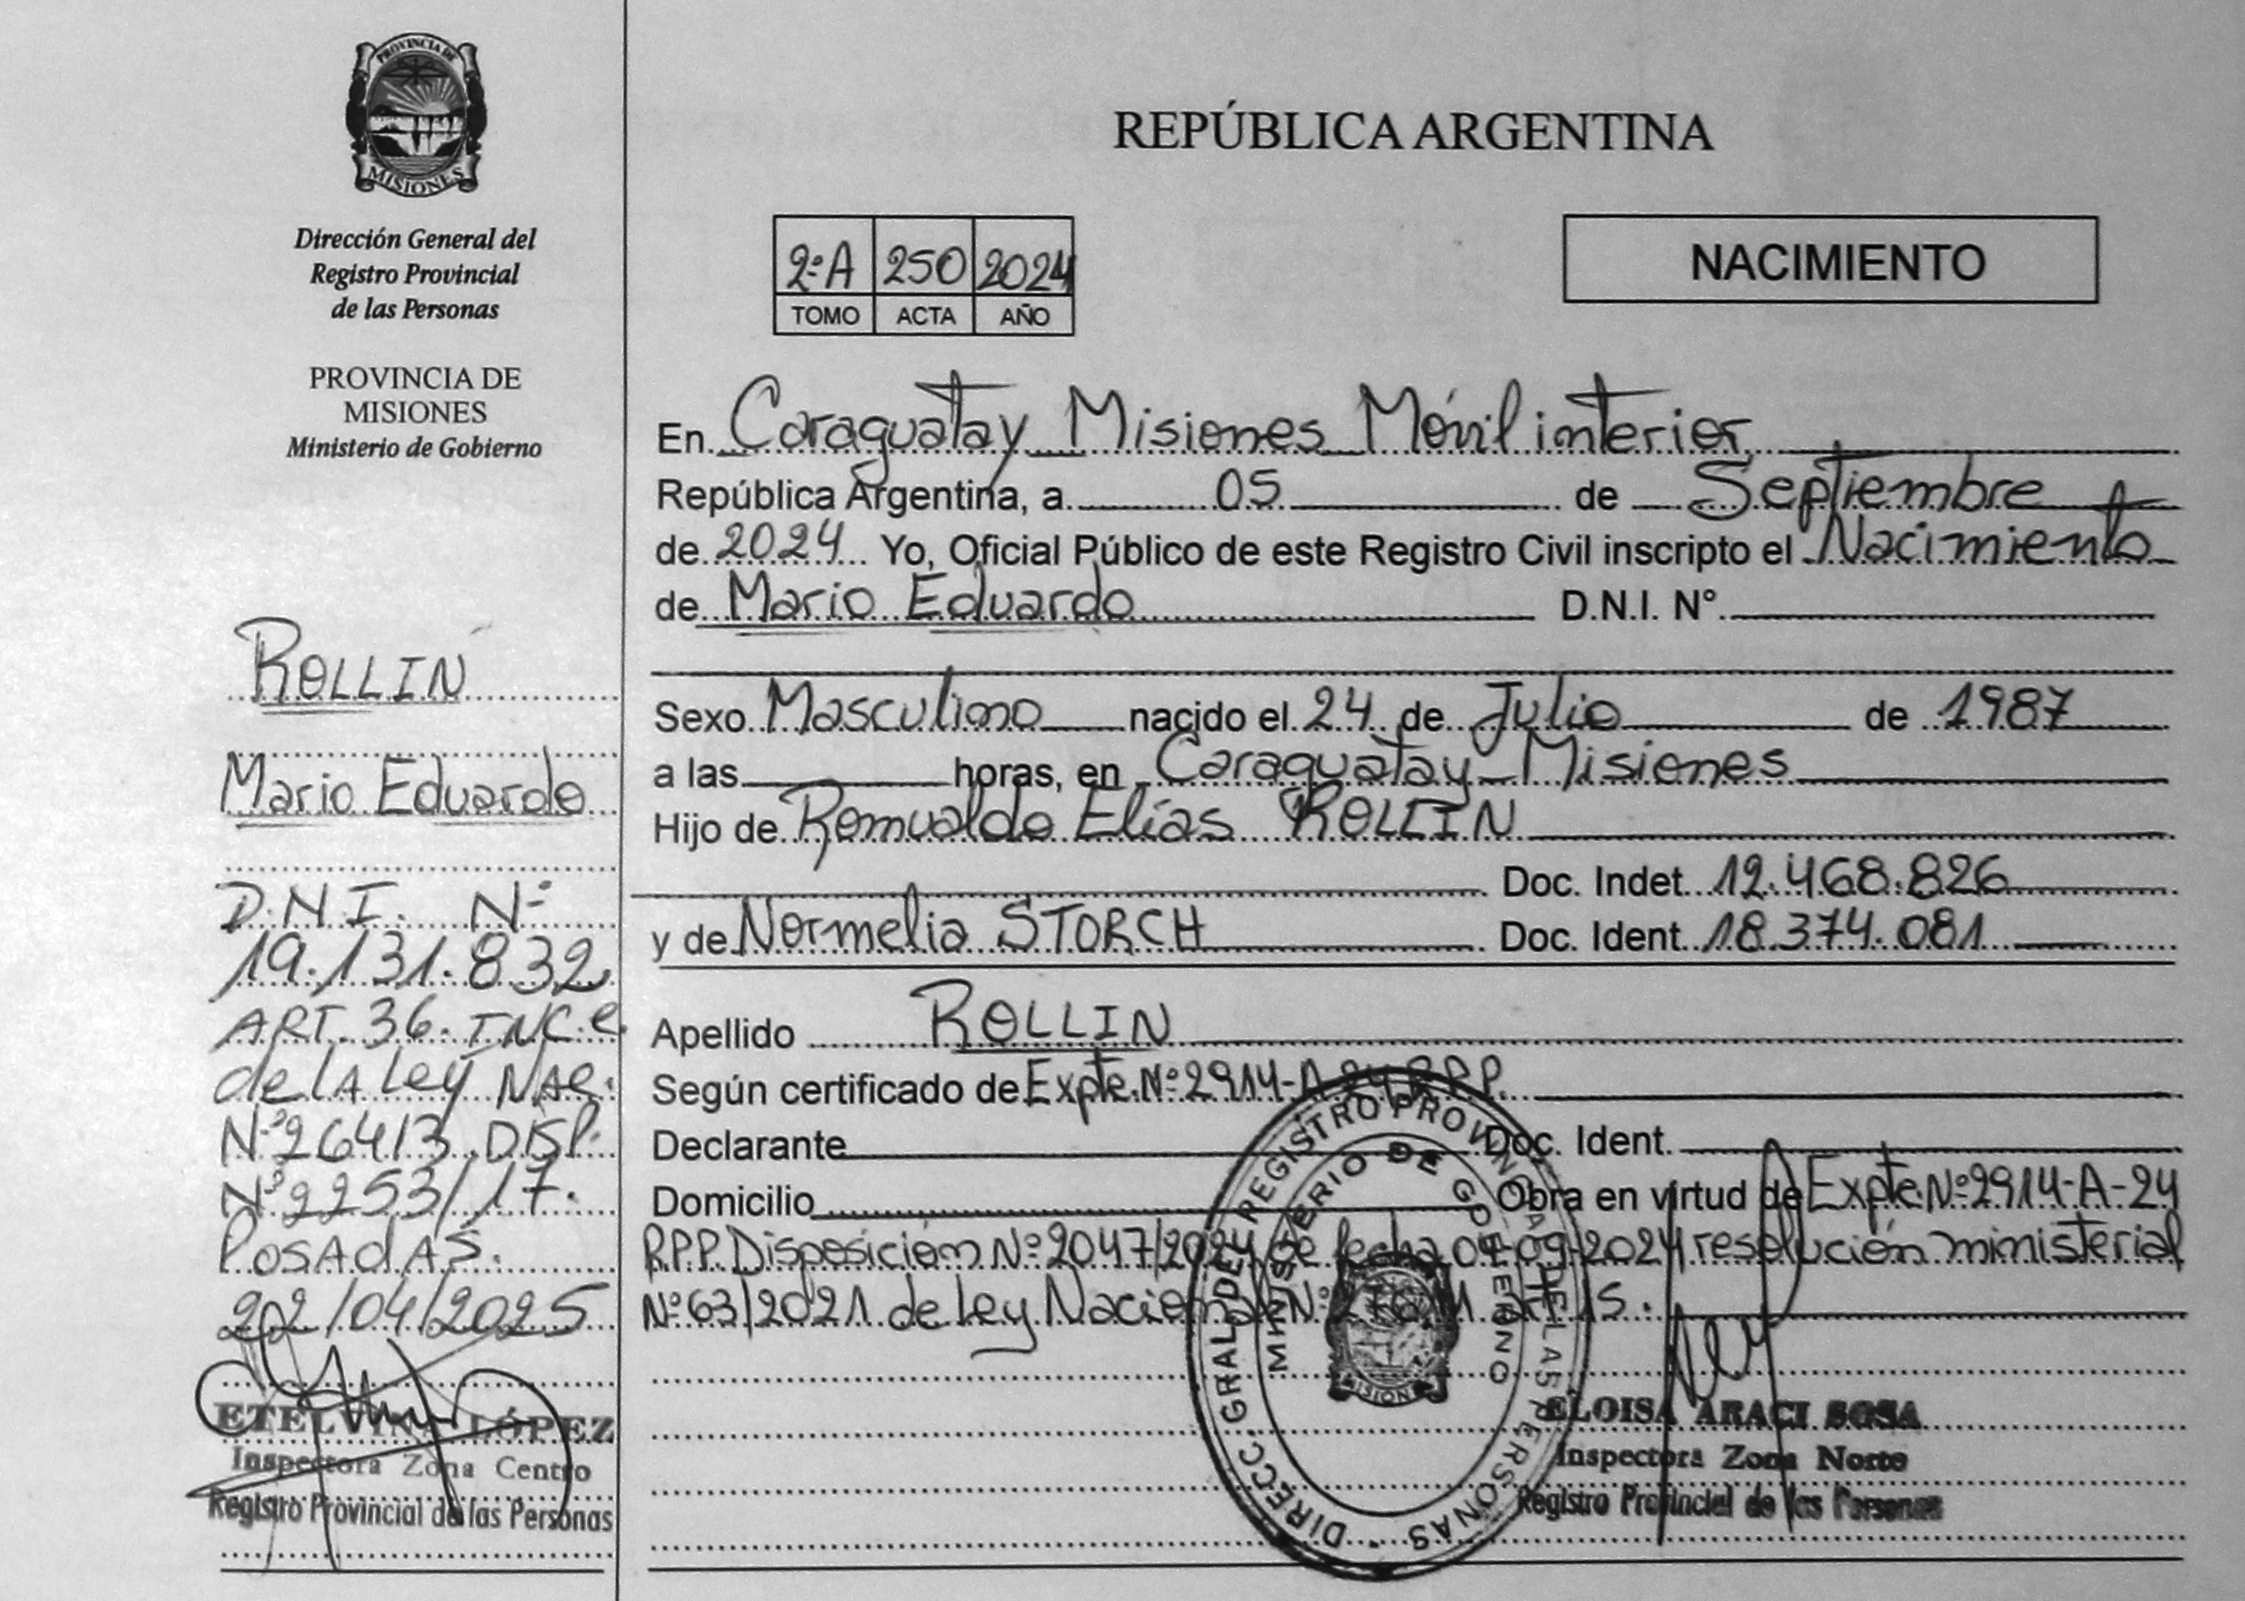 PROVINCIA DE
MISIONES
Dirección General del
Registro Provincial
de las Personas
PROVINCIA DE
MISIONES
Ministerio de Gobierno
ROLLIN
Mario Eduardo
D.N.I. Nº
19.131.832
ART. 36. INC. C.
de LA Ley NAC.
Nº 26413 DISP.
Nº 2253/17.
POSADAS.
22/04/2025
ETELVINA LÓPEZ
Inspectora Zona Centro
Registro Provincial de las Personas
REPÚBLICA ARGENTINA
2ºA 250 2024
TOMO ACTA AÑO
NACIMIENTO
En Caraguatay Misiones Móvil interior
República Argentina, a 05 de Septiembre
de 2024 Yo, Oficial Público de este Registro Civil inscripto el Nacimiento
de Mario Eduardo D.N.I. N°
Sexo Masculino nacido el 24 de Julio de 1987
a las horas, en Caraguatay Misiones
Hijo de Romualdo Elías ROLLIN
Doc. Indet. 12.468.826
y de Normelia STORCH Doc. Ident. 18.374.081
Apellido ROLLIN
Según certificado de Expte. Nº 2914-A-24 R.P.P.
Declarante Doc. Ident.
Domicilio Obra en virtud de Expte. Nº 2914-A-24
R.P.P. Disposición Nº 2047/2024 de fecha 04-09-2024 resolución ministerial
Nº 63/2021 de ley Nacional Nº art 15.
DIRECC. GRAL DEL REGISTRO PROVINCIAL DE LAS PERSONAS
MINISTERIO DE GOBIERNO
MISIONES
ELOISA ARACI SOSA
Inspectora Zona Norte
Registro Provincial de las Personas